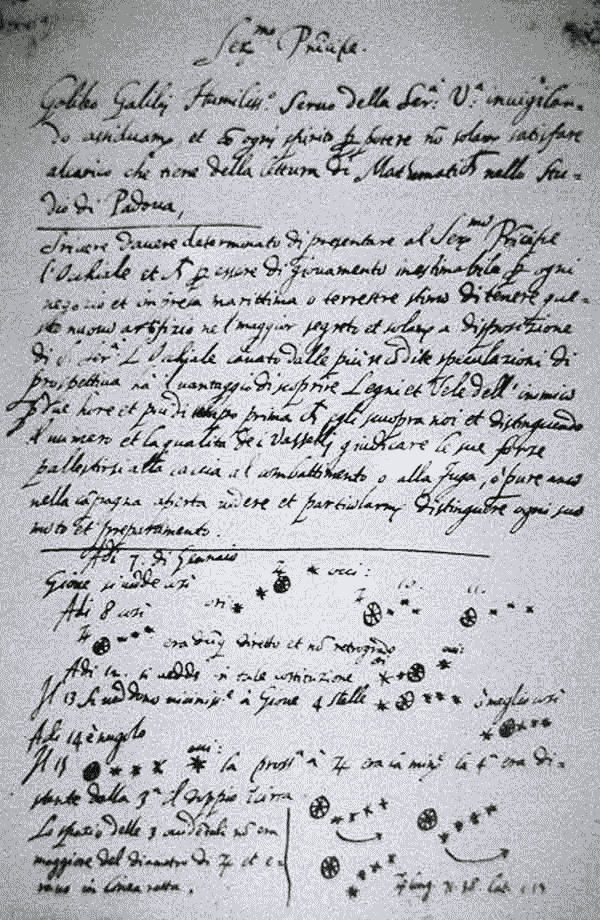 Ser.mo Principe.
Galileo Galilej Humiliss.o Servo della Ser.a V.a invigilan-
do assiduam.te et cõ ogni spirito p potere nõ solam.te satisfare
alcarico che tiene della lettura di Mathematich nello Stu-
dio di Padova,
Scrivere d'avere determinato di presentare al Ser.mo Principe
l'Ochiale et p essere di giovamento inestimabile p ogni
negozio et impresa marittima o terrestre stimo di tenere que-
sto nuovo artifizio nel maggior segreto et solam.te a disposizione
di Ser.a L'Ochiale cavato dalle più recõdite speculazioni di
prospettiva ha il vantaggio di scoprire Legni et Vele dell'inimico
p due hore et più di tempo prima ch egli scuopra noi et distinguendo
il numero et la qualità de i Vasselli giudicare le sue forze
pallestirsi alla caccia al combattimento o alla fuga, ò pure anco
nella cãpagna aperta vedere et particolarm.te distinguere ogni suo
moto et preparamento.
Adi 7. di Gennaio
Gione si vidde così occi:
Adi 8 così ori: 10. 11.
era dũq diretto et nõ retrogrado
Adi 12. si vedde in tale costituzione
Il 13 si veddono vicinis.e à Giove 4 stelle è meglio così
Adi 14 è nugolo
Il 15 occi: la pross.a à ♃ era la min.e la 4.a era di-
stante dalla 3.a il doppio circa
Lo spazio delle 3 occidentali nõ era
maggiore del diametro di ♃ et e-
rano in linea retta.
♃ long. 71.38 Lat. 1.13